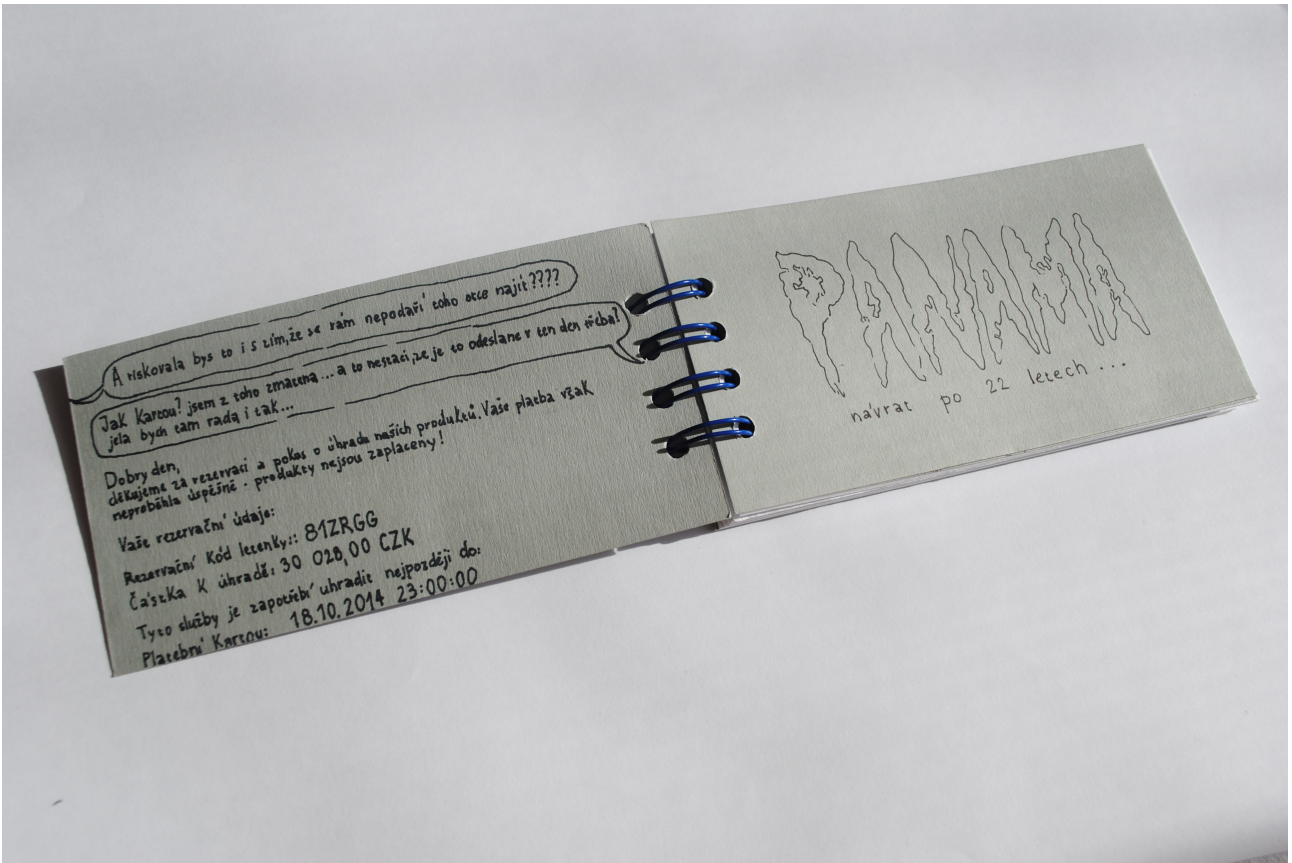 A riskovala bys to i s tím, že se vám nepodaří toho otce najít????
Jak Kartou? jsem z toho zmatená...a to nestačí, že je to odeslane v ten den třeba?
jela bych tam rada i tak...
Dobry den,
děkujeme za rezervaci a pokus o úhradu našich produktů. Vaše platba však
neproběhla úspěšně - produkty nejsou zaplaceny!
Vaše rezervační údaje:
Rezervační Kód letenky:: 81ZRGG
Částka K úhradě: 30 028,00 CZK
Tyto služby je zapotřebí uhradit nejpozději do:
Platební Kartou: 18.10.2014 23:00:00
PANAMA
návrat po 22 letech ...